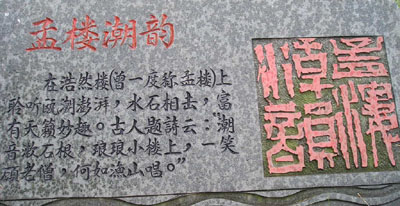 孟楼潮韵
在浩然楼(曾一度称孟楼)上
聆听瓯潮澎湃，水石相击，富
有天籁妙趣。古人题诗云："潮
音激石根，琅琅小楼上，一笑
顽老僧，何如渔山唱。"
孟楼
潮韵